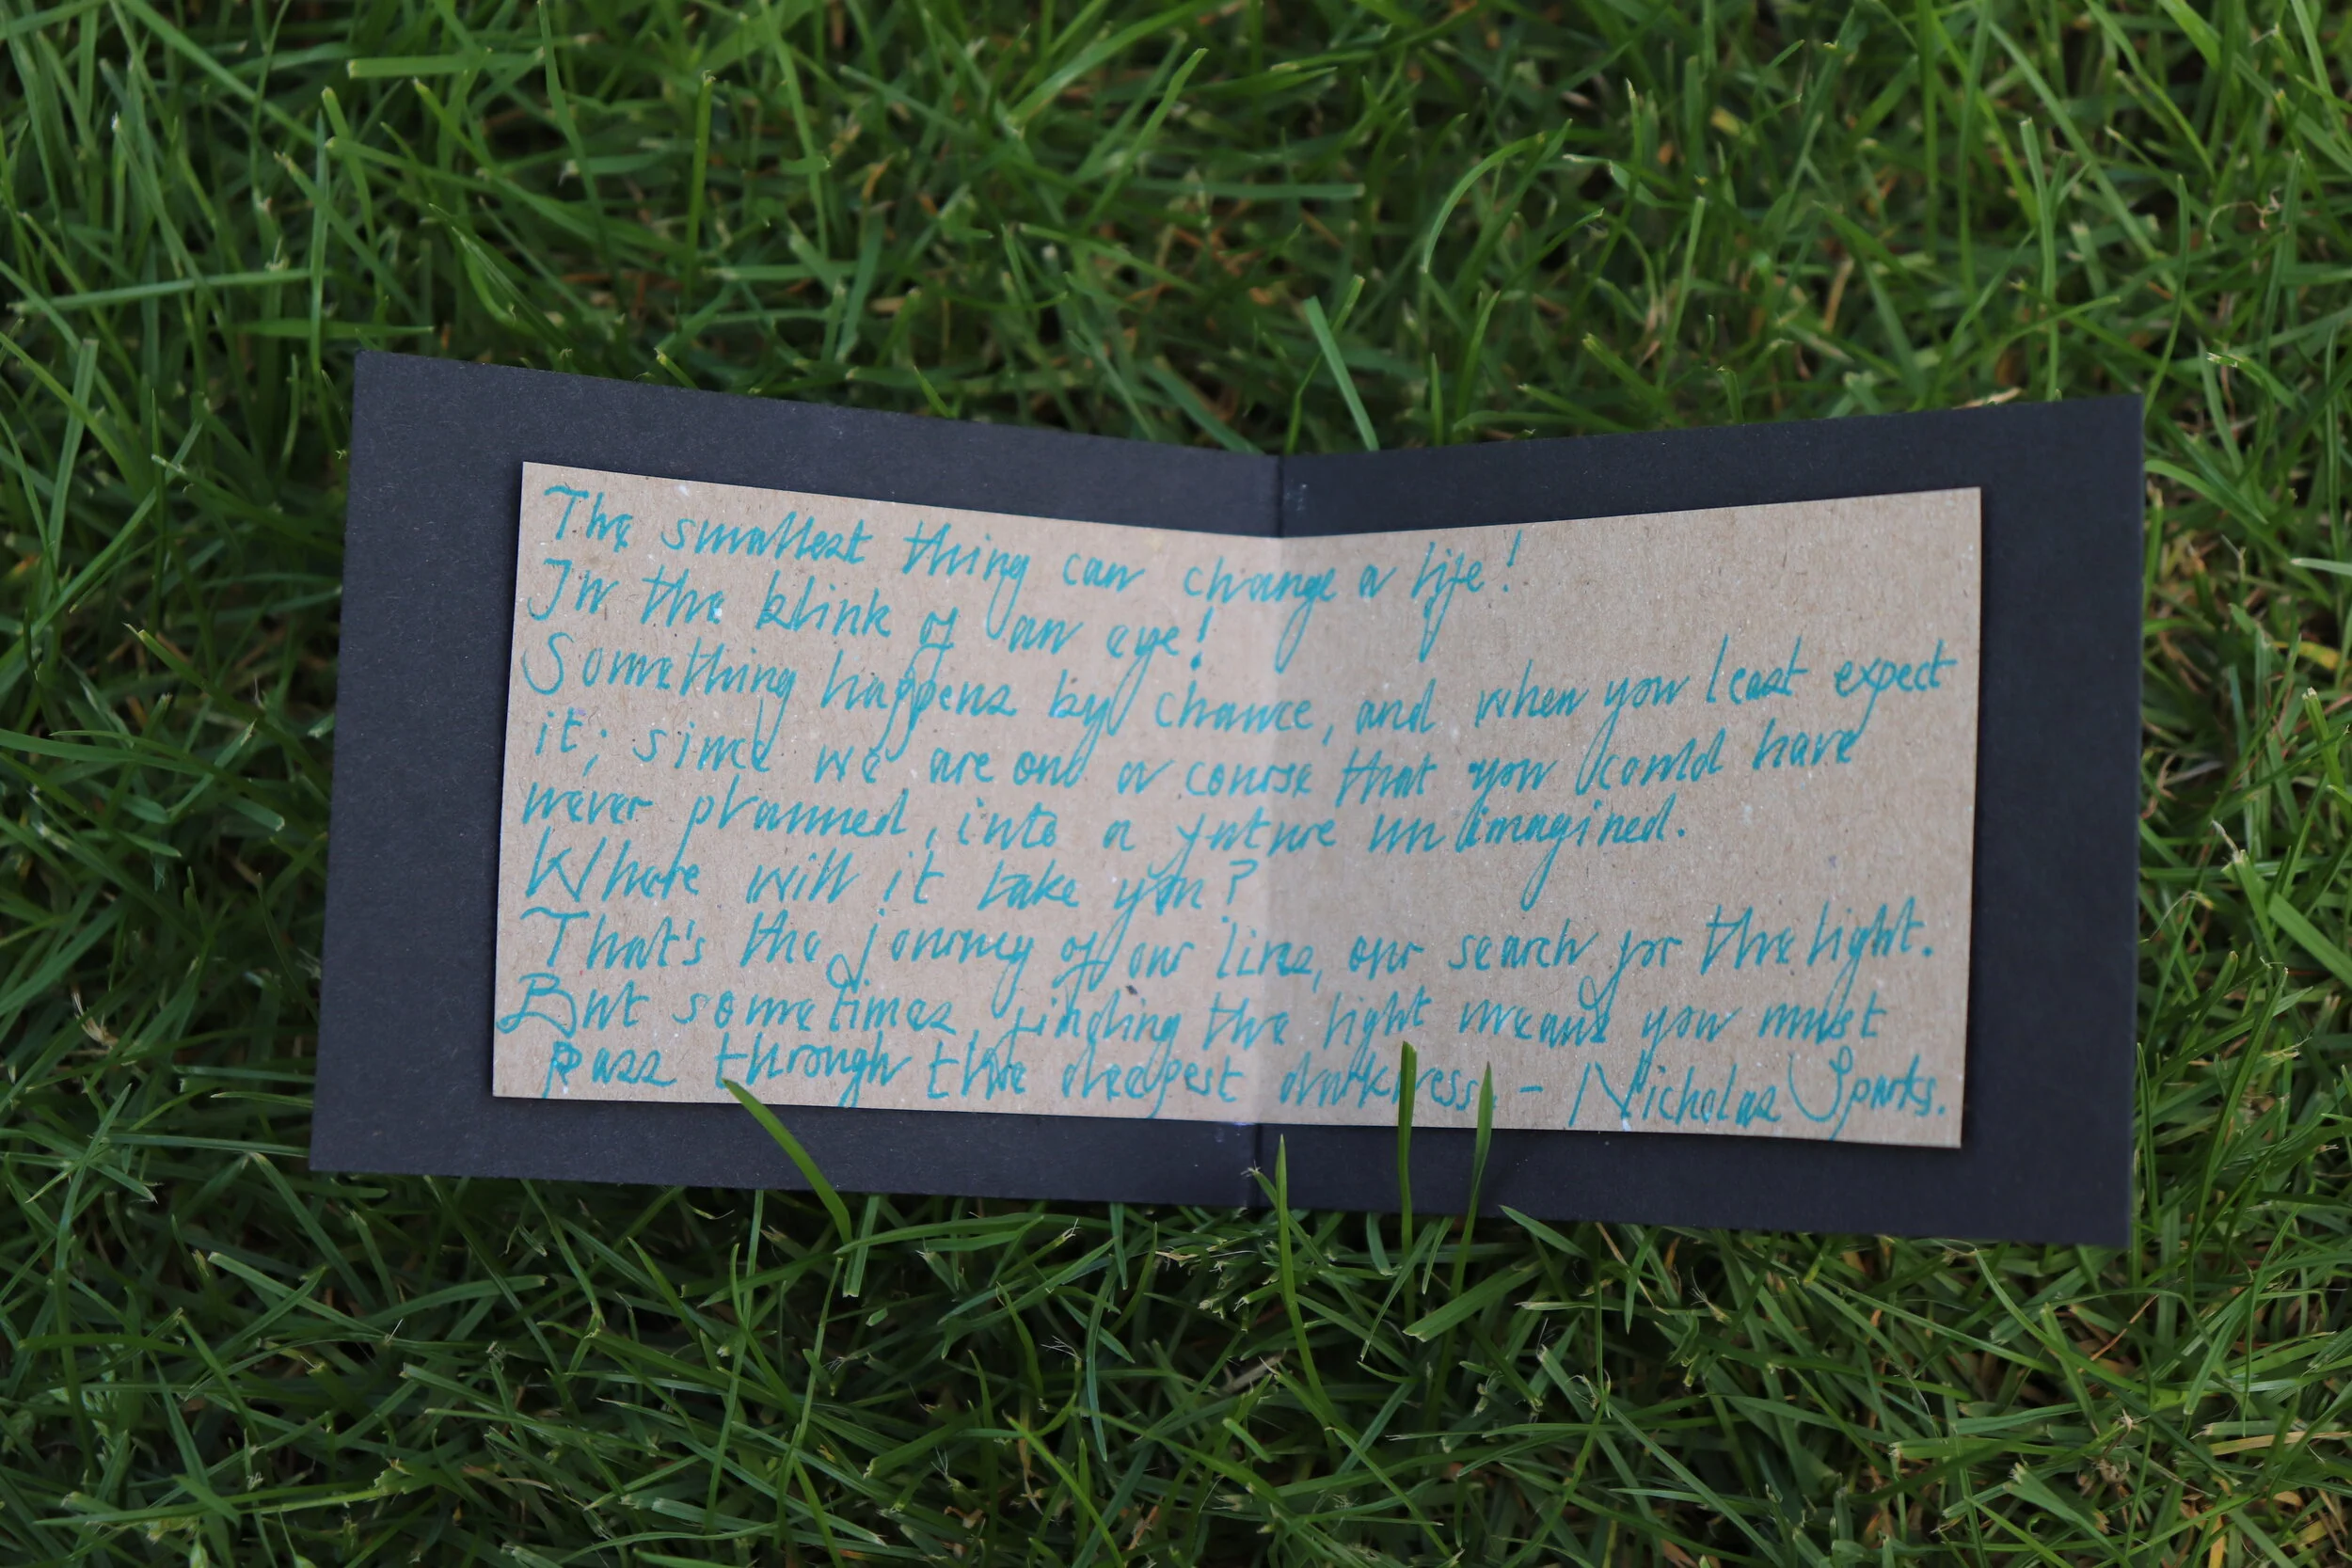 The smallest thing can change a life!
In the blink of an eye!
Something happens by chance, and when you least expect
it; since we are on a course that you could have
never planned, into a future unimagined.
Where will it take you?
That's the journey of our lives, our search for the light.
But sometimes, finding the light means you must
pass through the deepest darkness. - Nicholas Sparks.